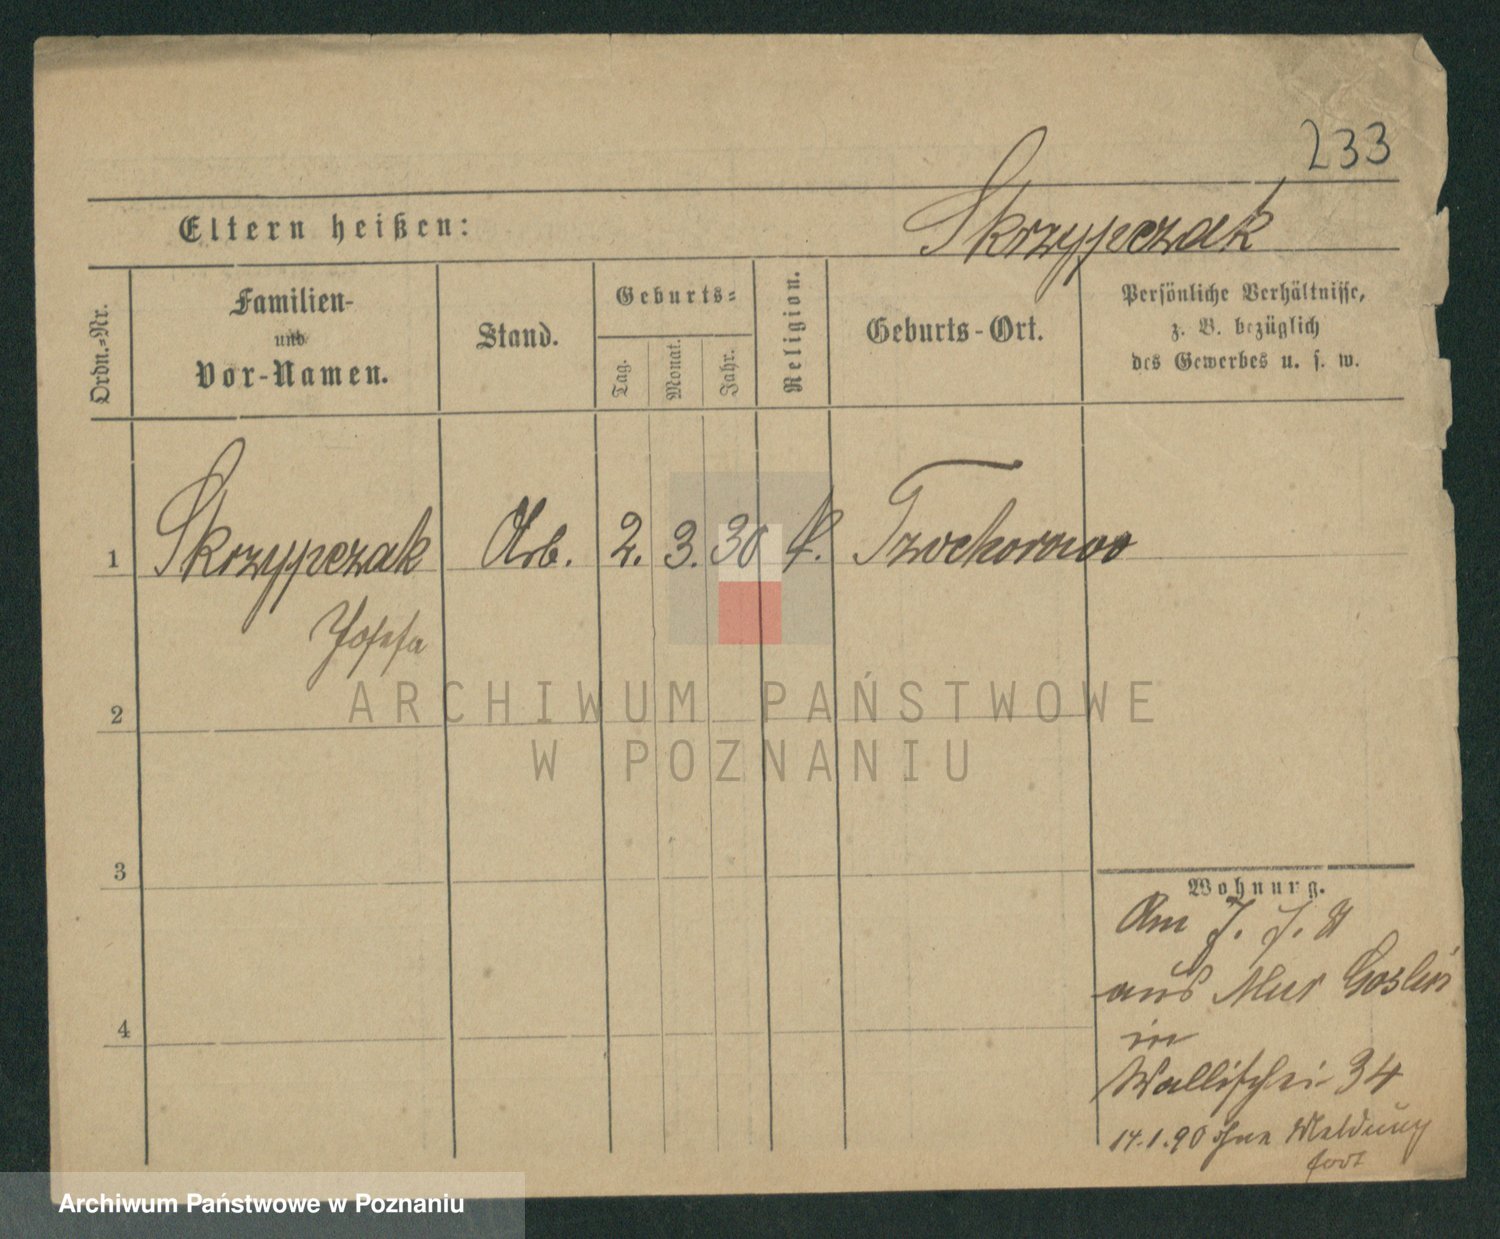 233
Eltern heißen:
Skrzypczak
Ordn.-Nr.
Familien-
und
Vor-Namen.
Stand.
Geburts-
Tag.
Monat.
Jahr.
Religion.
Geburts-Ort.
Persönliche Verhältnisse,
z. B. bezüglich
des Gewerbes u. s. w.
1 Skrzypczak Arb. 2. 3. 30 k.
Josefa
2
3
4
ARCHIWUM PAŃSTWOWE
W POZNANIU
Wohnung.
Am
aus Mur Goslin
in
Wallischei 34
14.1.90 ohne Meldung
fort
Archiwum Państwowe w Poznaniu